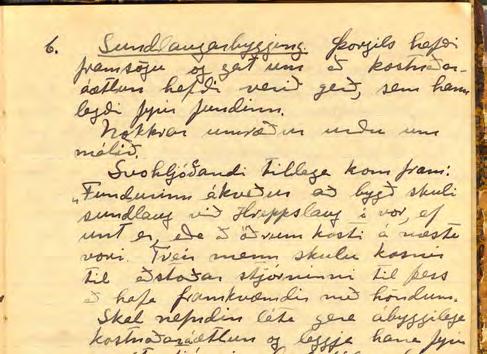 6. Sundlaugarbygging. Þorgils hafði
framsögu og gat um að kostnaðar-
áætlun hefði verið gerð, sem hann
lagði fyrir fundinn.
Nokkrar umræður urðu um
málið.
Svohljóðandi tillaga kom fram:
"Fundurinn ákveður að byggð skuli
sundlaug við Hreppslaug í vor, ef
unt er, eða að öðrum kosti á næsta
vori. Tveir menn skulu kosnir
til aðstoðar stjórninni til þess
að hafa framkvæmdir með höndum.
Skal nefndin láta gera ábyggilega
kostnaðaráætlun og leggja hana fyrir